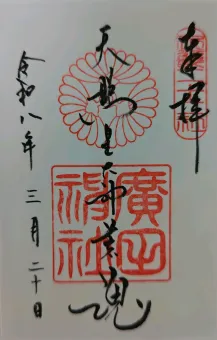 奉拝
天照皇大神荒魂
廣田神社
令和八年三月二十日